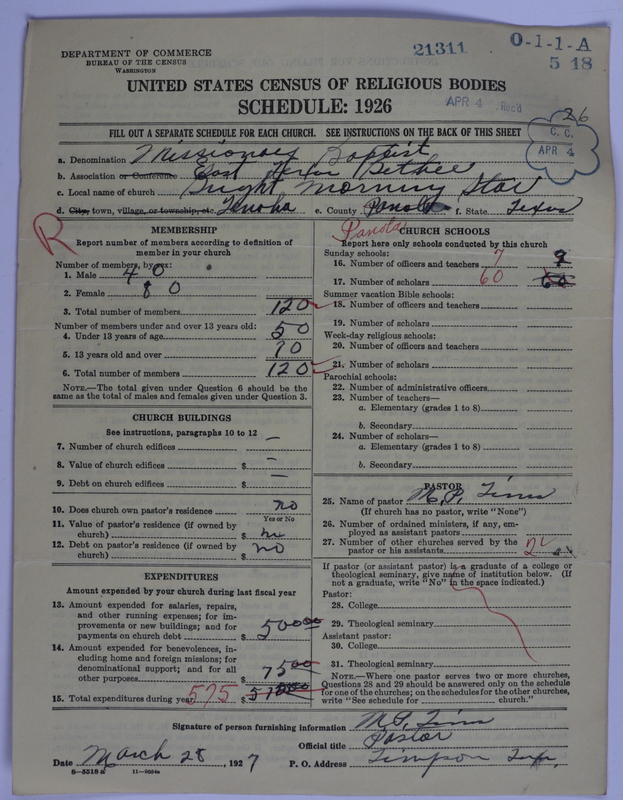 DEPARTMENT OF COMMERCE
BUREAU OF THE CENSUS
WASHINGTON
21311
O-1-1-A
5 18
UNITED STATES CENSUS OF RELIGIOUS BODIES
SCHEDULE: 1926
APR 4 Rec'd
26
C. C.
APR 4
FILL OUT A SEPARATE SCHEDULE FOR EACH CHURCH. SEE INSTRUCTIONS ON THE BACK OF THIS SHEET
a. Denomination Missionary Baptist
b. Association or Conference East Texas Bethel
c. Local name of church Bright Morning Star
d. City, town, village, or township, etc. Tenaha e. County Panola f. State Texas
R
Panola
MEMBERSHIP
Report number of members according to definition of
member in your church
Number of members, by sex:
1. Male 40
2. Female 80
3. Total number of members 120
Number of members under and over 13 years old:
4. Under 13 years of age 50
5. 13 years old and over 70
6. Total number of members 120
NOTE.—The total given under Question 6 should be
same as the total of males and females given under Question 3.
CHURCH BUILDINGS
See instructions, paragraphs 10 to 12
7. Number of church edifices —
8. Value of church edifices $ —
9. Debt on church edifices $ —
10. Does church own pastor's residence no
Yes or No
11. Value of pastor's residence (if owned by
church) $ no
12. Debt on pastor's residence (if owned by
church) $ no
EXPENDITURES
Amount expended by your church during last fiscal year
13. Amount expended for salaries, repairs,
and other running expenses; for im-
provements or new buildings; and for
payments on church debt $ 50000
14. Amount expended for benevolences, in-
cluding home and foreign missions; for
denominational support; and for all
other purposes 7500
15. Total expenditures during year 575 $ 57500
CHURCH SCHOOLS
Report here only schools conducted by this church
Sunday schools:
16. Number of officers and teachers 7
17. Number of scholars 60 60
Summer vacation Bible schools:
18. Number of officers and teachers
19. Number of scholars
Week-day religious schools:
20. Number of officers and teachers
21. Number of scholars
Parochial schools:
22. Number of administrative officers
23. Number of teachers—
a. Elementary (grades 1 to 8)
b. Secondary
24. Number of scholars—
a. Elementary (grades 1 to 8)
b. Secondary
PASTOR
25. Name of pastor M. P. Tims
(If church has no pastor, write "None")
26. Number of ordained ministers, if any, em-
ployed as assistant pastors
27. Number of other churches served by the
pastor or his assistants 2
If pastor (or assistant pastor) is a graduate of a college or
theological seminary, give name of institution below. (If
not a graduate, write "No" in the space indicated.)
Pastor:
28. College
29. Theological seminary
Assistant pastor:
30. College
31. Theological seminary
NOTE.—Where one pastor serves two or more churches,
Questions 28 and 29 should be answered only on the schedule
for one of the churches; on the schedules for the other churches,
write "See schedule for church."
Signature of person furnishing information M. P. Tims
Official title Pastor
Date March 28, 1927 P. O. Address Timpson Tex.
8-5518 a 11-9034a